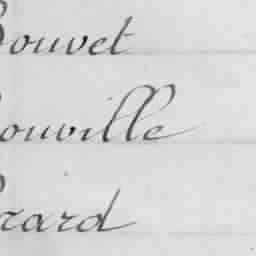 ouvet
ouville
rard